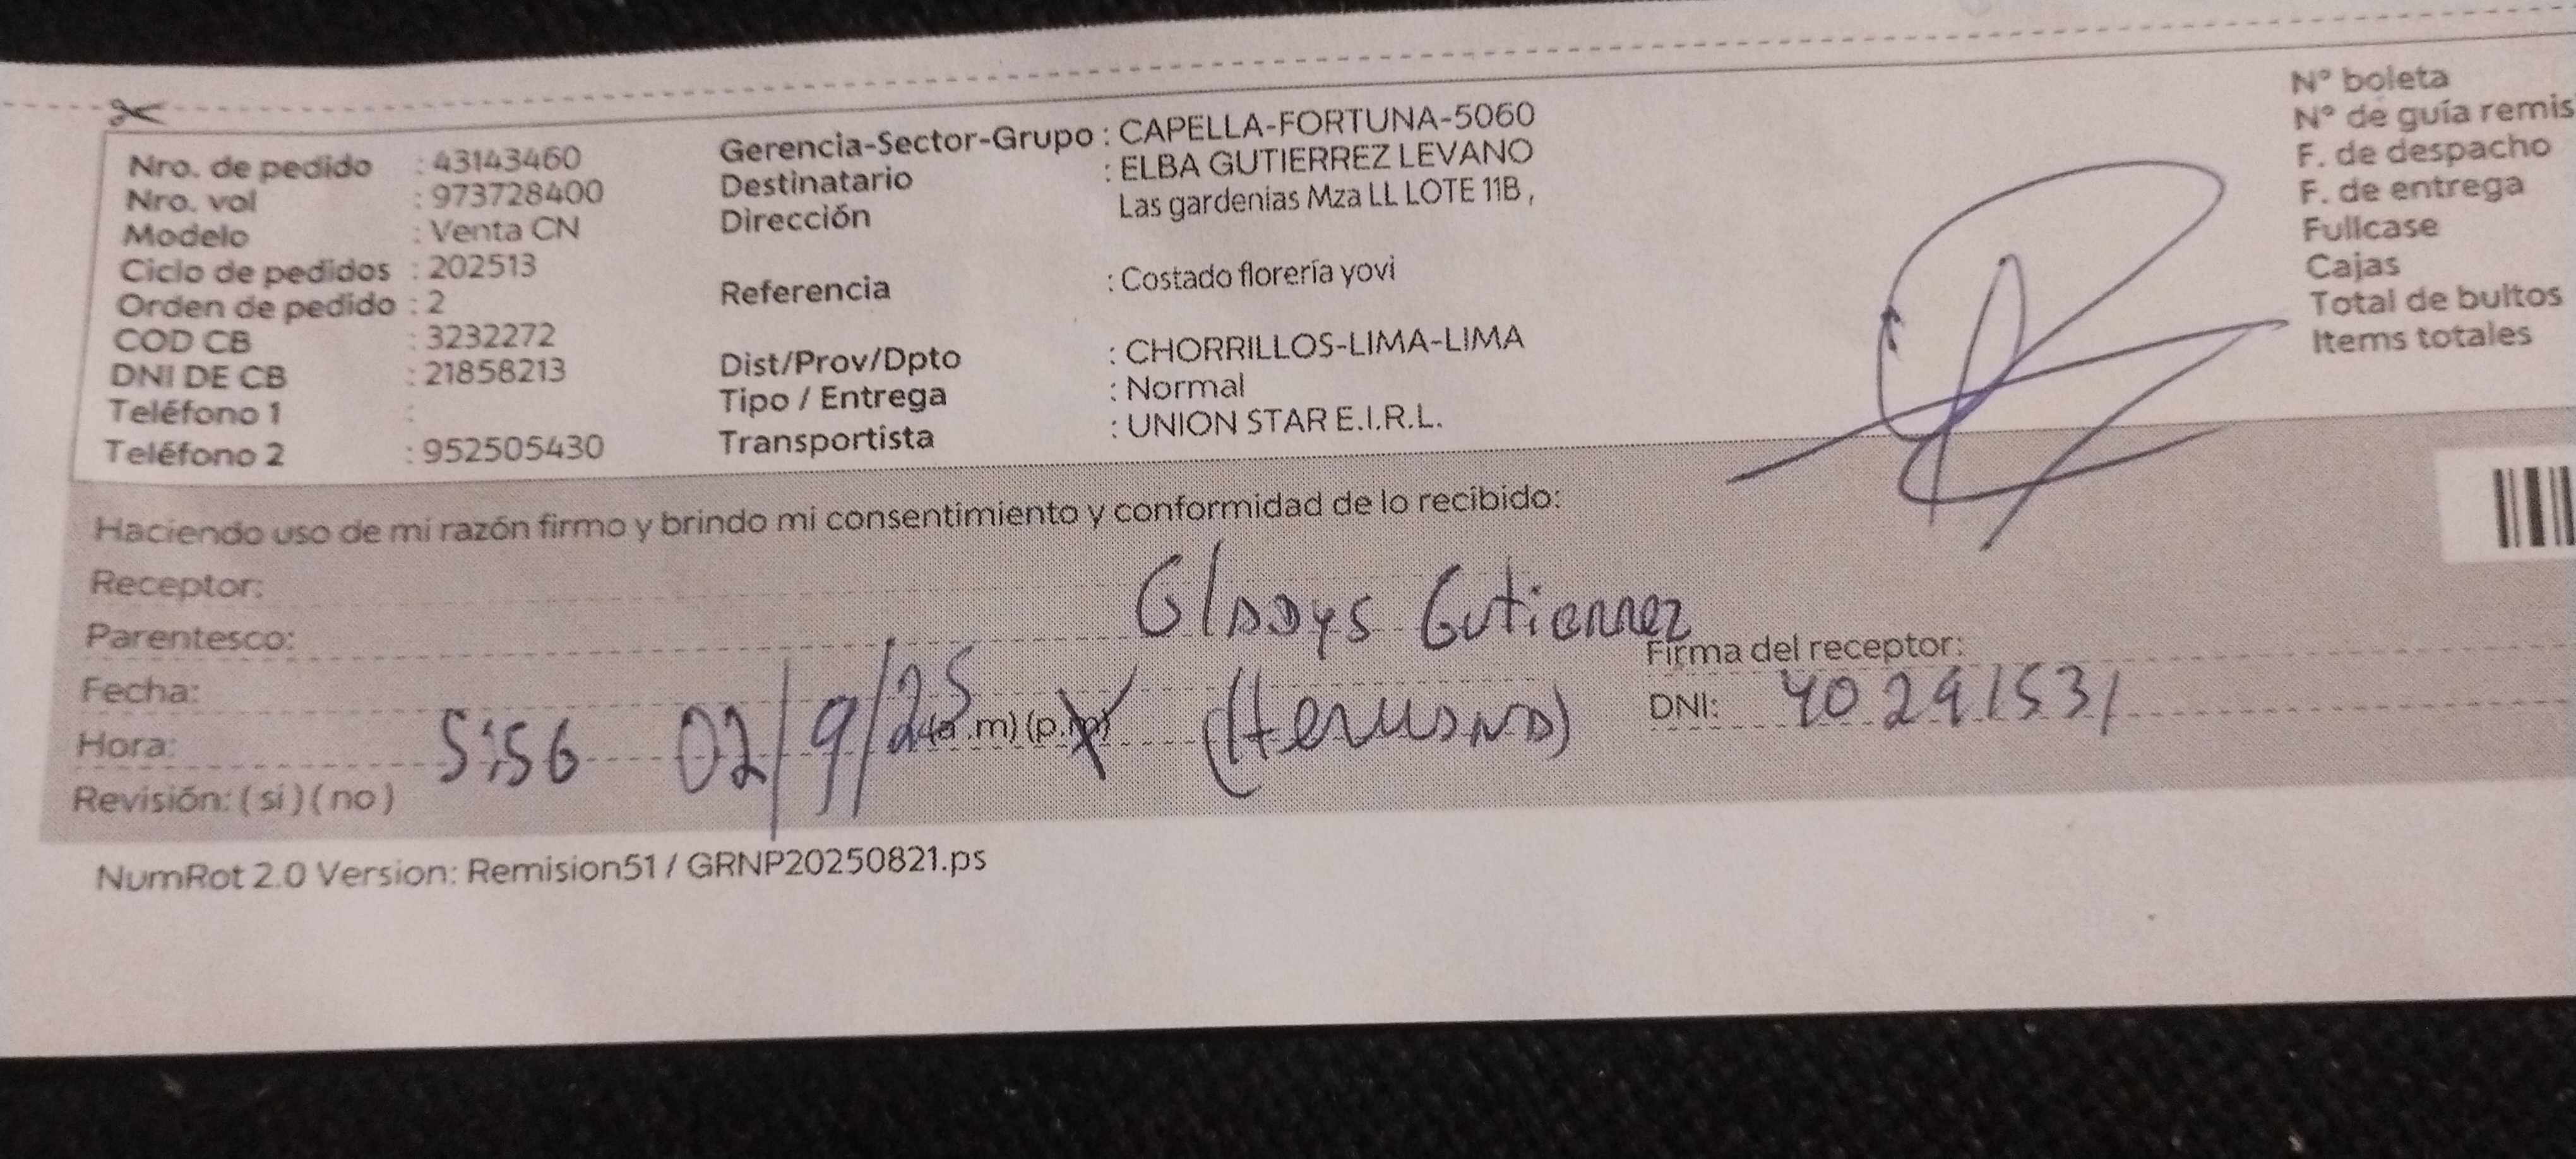 Nro. de pedido : 43143460
Nro. vol : 973728400
Modelo : Venta CN
Ciclo de pedidos : 202513
Orden de pedido : 2
COD CB : 3232272
DNI DE CB : 21858213
Teléfono 1 :
Teléfono 2 : 952505430
Gerencia-Sector-Grupo : CAPELLA-FORTUNA-5060
Destinatario : ELBA GUTIERREZ LEVANO
Dirección Las gardenias Mza LL LOTE 11B ,
Referencia : Costado florería yovi
Dist/Prov/Dpto : CHORRILLOS-LIMA-LIMA
Tipo / Entrega : Normal
Transportista : UNION STAR E.I.R.L.
N° boleta
N° de guía remis
F. de despacho
F. de entrega
Fullcase
Cajas
Total de bultos
Items totales
Haciendo uso de mi razón firmo y brindo mi consentimiento y conformidad de lo recibido:
Receptor:
Gladys Gutierrez
Parentesco:
Firma del receptor:
Fecha:
DNI: 40291531
Hora: 5:56 02/9/25 (a.m) (p.m) (Hermana)
Revisión: ( si ) ( no )
NumRot 2.0 Version: Remision51 / GRNP20250821.ps